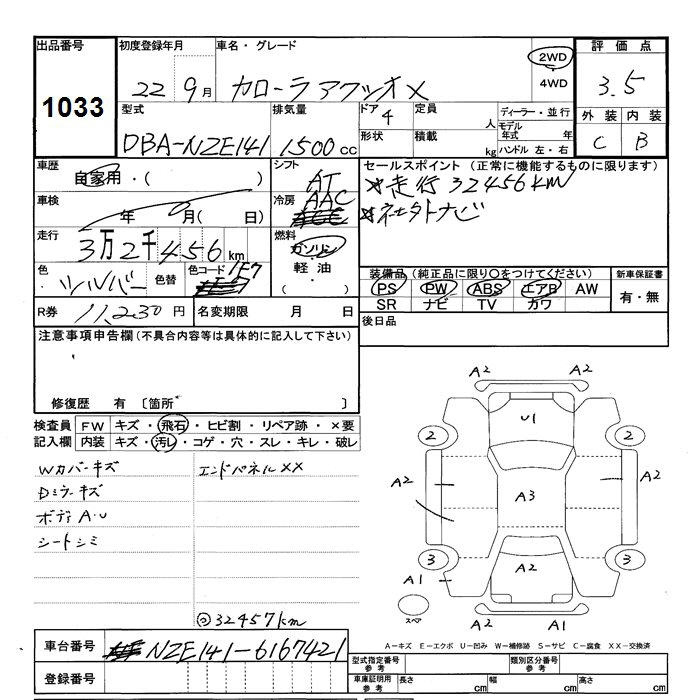 出品番号 初度登録年月 車名・グレード 2WD 評価点
1033 22 9月 カローラアクシオX 4WD 3.5
型式 排気量 ドア 4 定員 人 ディーラー・並行 外装 内装
DBA-NZE141 1500cc 形状 積載 kg モデル年式 年 ハンドル 左・右 C B
車歴 自家用・( ) シフト AT セールスポイント(正常に機能するものに限ります)
車検 年 月( 日) 冷房 AAC ※走行32456km
※社外ナビ
走行 3万2千456km 燃料 ガソリン 軽油・( )
色 シルバー 色替 色コード 1F7 装備品(純正品に限り〇をつけてください) 新車保証書
PS PW ABS エアB AW 有・無
SR ナビ TV カワ
R券 11,230円 名変期限 月 日 後日品
注意事項申告欄(不具合内容等は具体的に記入して下さい)
修復歴 有 〔箇所 〕
検査員 FW キズ・飛石・ヒビ割・リペア跡・×要
記入欄 内装 キズ・汚レ・コゲ・穴・スレ・キレ・破レ
Wカバーキズ エンドパネルXX
Dミラーキズ
ボディA.U
シートシミ
32457km
A2 A2
U1
2 2
A2 A3 A2
3 3
A1 A2
スペア A2 A1
A-キズ E-エクボ U-凹み W-補修跡 S-サビ C-腐食 XX-交換済
車台番号 NZE141-6167421
登録番号
型式指定番号 参考 類別区分番号 参考
車庫証明用 参考 長さ cm 幅 cm 高さ cm